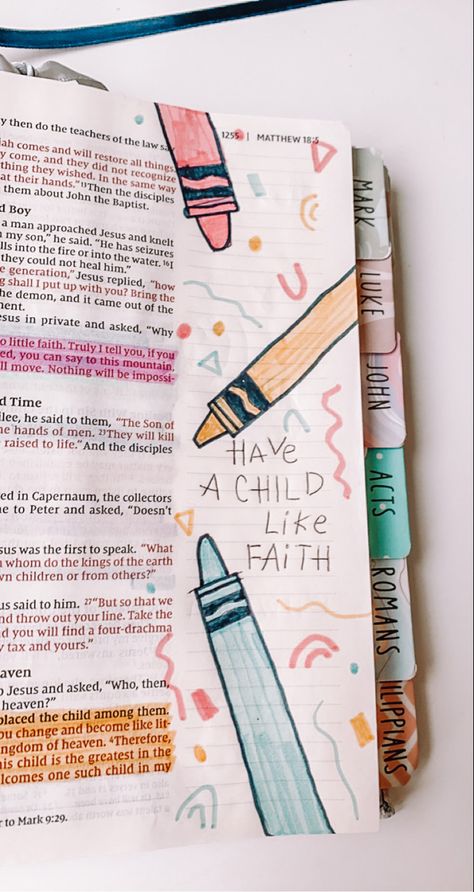 1255 | MATTHEW 18:5
y then do the teachers of the law say
ah comes and will restore all things.
y come, and they did not recognize
thing they wished. In the same way
at their hands." 13 Then the disciples
them about John the Baptist.
d Boy
a man approached Jesus and knelt
n my son," he said. "He has seizures
lls into the fire or into the water. 16 I
they could not heal him."
e generation," Jesus replied, "how
g shall I put up with you? Bring the
he demon, and it came out of the
ment.
esus in private and asked, "Why
o little faith. Truly I tell you, if you
ed, you can say to this mountain,
ll move. Nothing will be impossi-
d Time
ilee, he said to them, "The Son of
he hands of men. 23 They will kill
raised to life." And the disciples
ed in Capernaum, the collectors
me to Peter and asked, "Doesn't
sus was the first to speak. "What
whom do the kings of the earth
wn children or from others?"
us said to him. 27 "But so that we
nd throw out your line. Take the
d you will find a four-drachma
y tax and yours."
eaven
o Jesus and asked, "Who, then,
heaven?"
placed the child among them.
ou change and become like lit-
ngdom of heaven. 4 Therefore,
his child is the greatest in the
lcomes one such child in my
r to Mark 9:29.
HAVE
A CHILD
LIKE
FAITH
MARK
LUKE
JOHN
ACTS
ROMANS
ILIPPIANS